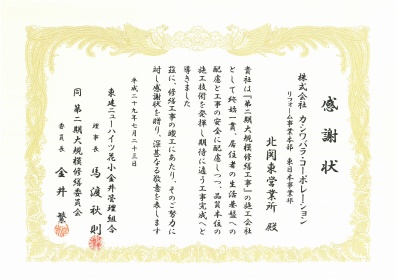 感謝状
株式会社 カシワバラ・コーポレーション
リフォーム事業本部 東日本事業部
北関東営業所 殿
貴社は『第二期大規模修繕工事』の施工会社
として終始一貫、居住者の生活基盤への
配慮と工事の安全に配慮しつつ、品質本位の
施工技術を発揮し期待に違う工事完成へと
導きました
茲に、修繕工事の竣工にあたり、そのご努力に
対し感謝状を贈り、深甚なる敬意を表します
平成二十九年七月二十三日
東建ニューハイツ花小金井管理組合
理事長 馬渡秋則
同 第二期大規模修繕委員会
委員長 金井繁